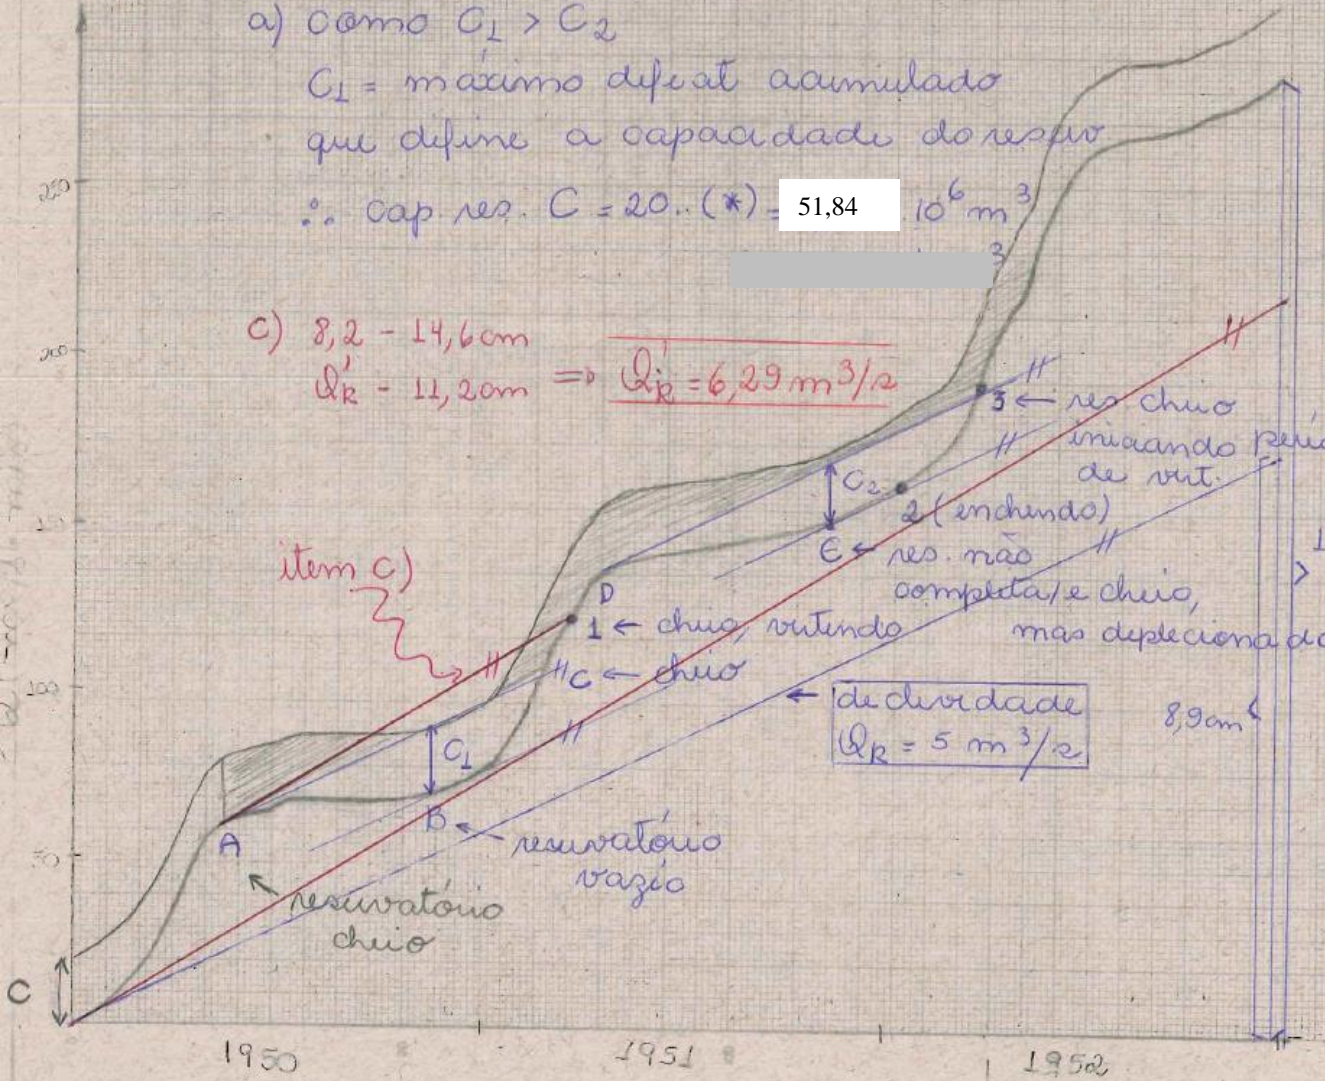 a) como C₁ > C₂
C₁ = máximo deficit acumulado
que define a capacidade do reserv
∴ cap. res. C = 20..(*) = 51,84 10⁶ m³
3
250
c) 8,2 - 14,6 cm
Q'R - 11,2 cm ⇒ Q'R = 6,29 m³/s
200
3 ← res. cheio
iniciando perío
de vert.
C₂
2 (enchendo)
E ← res. não
completa/e cheio,
mas deplecionado
item c)
D
1 ← cheio, vertendo
C ← cheio
100
← de clividade
QR = 5 m³/s
8,9 cm
1
C₁
B ← reservatório
vazio
A
50
reservatório
cheio
C
1950
1951
1952